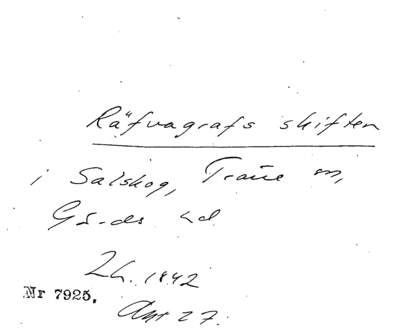 Räfvagrafs skiften
i Salskog, Tranе sn,
Gds hd
Lh. 1842
Nr 7925.
Ant 27.